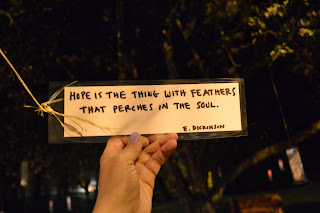 HOPE IS THE THING WITH FEATHERS
THAT PERCHES IN THE SOUL.
E. DICKINSON